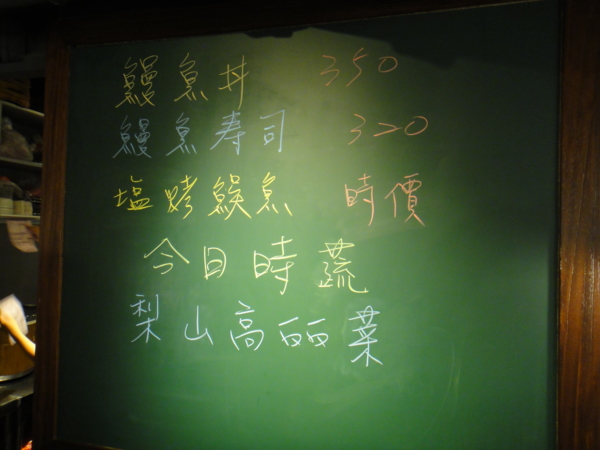 鰻魚丼 350
鰻魚寿司 320
塩烤魚 時價
今日時蔬
梨山高丽菜